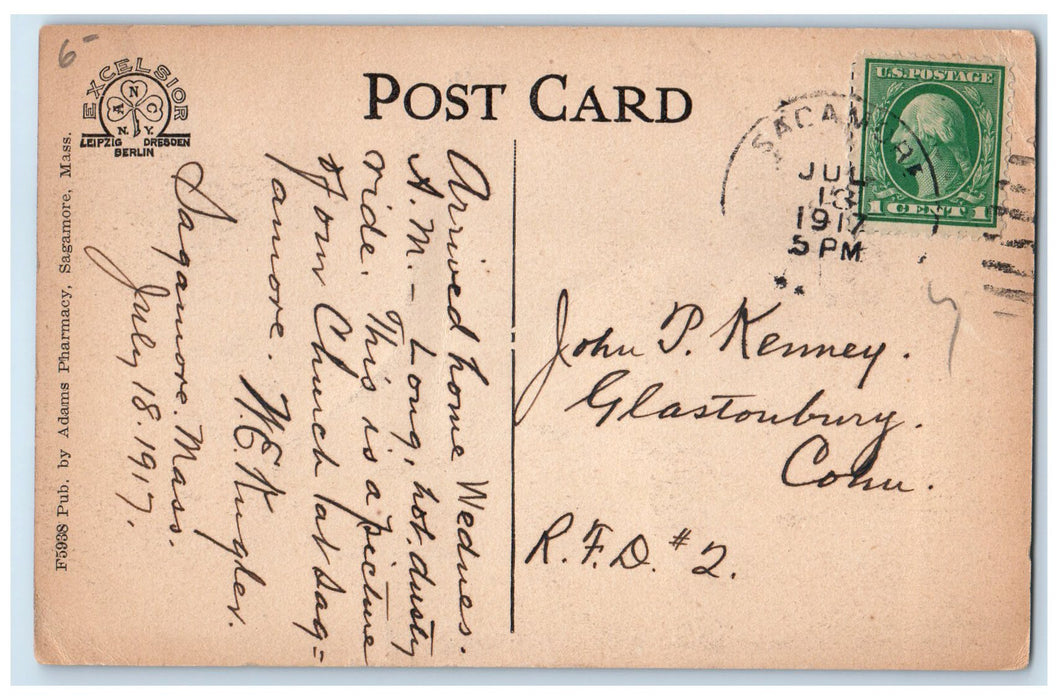 6-
EXCELSIOR
ANC
N.Y.
LEIPZIG DRESDEN
BERLIN
POST CARD
U.S. POSTAGE
1 CENT 1
SAGAMORE
JUL
18
1917
5 PM
F5938 Pub. by Adams Pharmacy, Sagamore, Mass.
Sagamore. Mass.
July 18. 1917.
Arrived home Wednes.
A.M. - Long, hot, dusty
ride. This is a picture
of our Church (at Sag=
amore. W.E. Kugler.
John P. Kenney.
Glastonbury.
Conn.
R.F.D. #2.